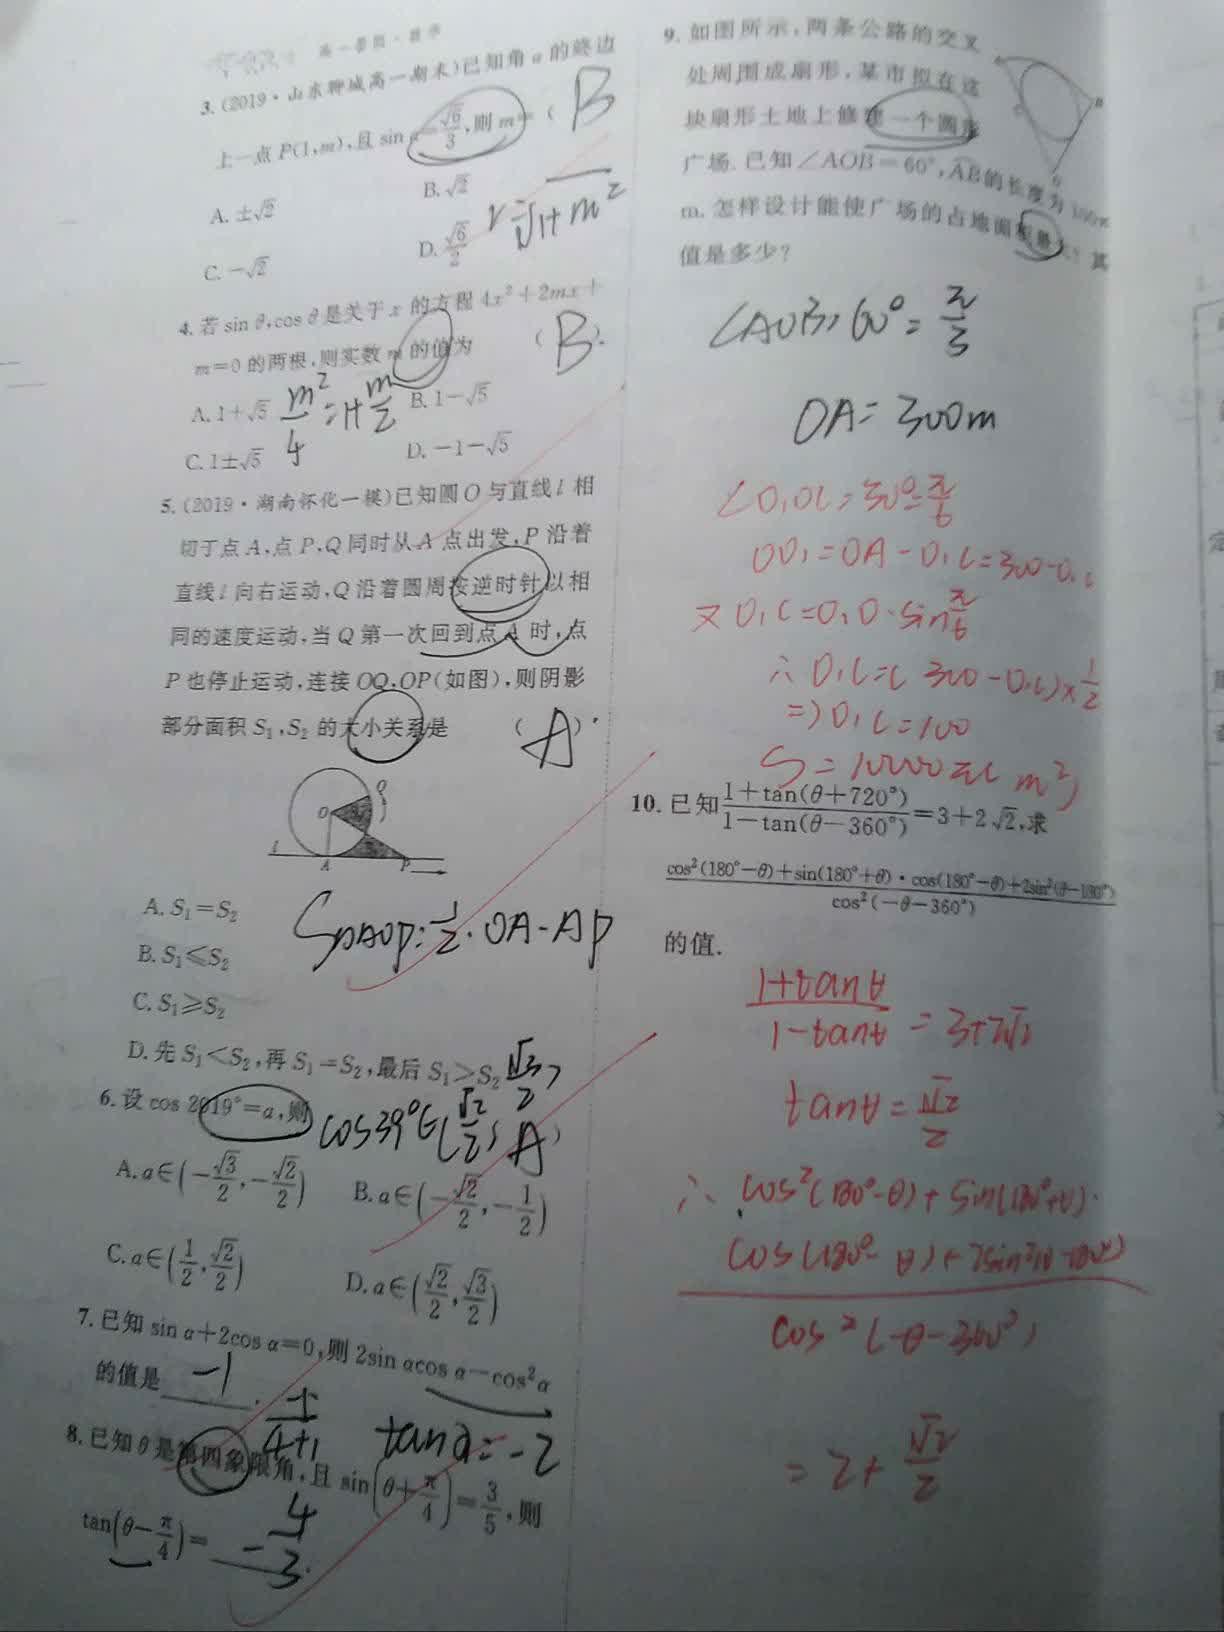 高一暑假·数学
3.(2019·山东聊城高一期末)已知角α的终边
上一点P(1,m),且sin α=√6/3,则m=( B
A.±√2
B.√2
C.-√2
D.√6/2
r=√1+m²
4.若sin θ,cos θ是关于x的方程4x²+2mx+
m=0的两根,则实数m的值为 (B).
A.1+√5
B.1-√5
m²/4=1+m/2
C.1±√5
D.-1-√5
5.(2019·湖南怀化一模)已知圆O与直线l相
切于点A,点P,Q同时从A点出发,P沿着
直线l向右运动,Q沿着圆周按逆时针以相
同的速度运动,当Q第一次回到点A时,点
P也停止运动,连接OQ,OP(如图),则阴影
部分面积S₁,S₂的大小关系是 (A).
O
Q
l
A
P
A.S₁=S₂
B.S₁≤S₂
C.S₁≥S₂
D.先S₁<S₂,再S₁=S₂,最后S₁>S₂
:1/2·OA-AP
6.设cos 2019°=a,则 ( A )
cos39°∈(√2/2, √3/2)
A.a∈(-√3/2,-√2/2)
B.a∈(-√2/2,-1/2)
C.a∈(1/2,√2/2)
D.a∈(√2/2,√3/2)
7.已知sin α+2cos α=0,则2sin αcos α-cos²α
的值是 -1 .
4+1
tanα=-2
8.已知θ是第四象限角,且sin(θ+π/4)=3/5,则
tan(θ-π/4)= -4/3.
9.如图所示,两条公路的交叉
处周围成扇形,某市拟在这
块扇形土地上修建一个圆形
广场.已知∠AOB=60°,AB的长度为100π
m.怎样设计能使广场的占地面积最大?其
值是多少?
A
C
B
O
∠AOB=60°=π/3
OA=300m
∠O₁OC=30°=π/6
OO₁=OA-O₁C=300-O₁C
又O₁C=O₁O·sinπ/6
∴O₁C=(300-O₁C)×1/2
=)O₁C=100
S=10000π(m²)
10.已知(1+tan(θ+720°))/(1-tan(θ-360°))=3+2√2,求
(cos²(180°-θ)+sin(180°+θ)·cos(180°-θ)+2sin²(θ-180°))/cos²(-θ-360°)
的值.
(1+tanθ)/(1-tanθ)=3+2√2
tanθ=√2/2
∴cos²(180°-θ)+sin(180°+θ)·
cos(180°-θ)+2sin²(θ-180°)
cos²(-θ-360°)
=2+√2/2